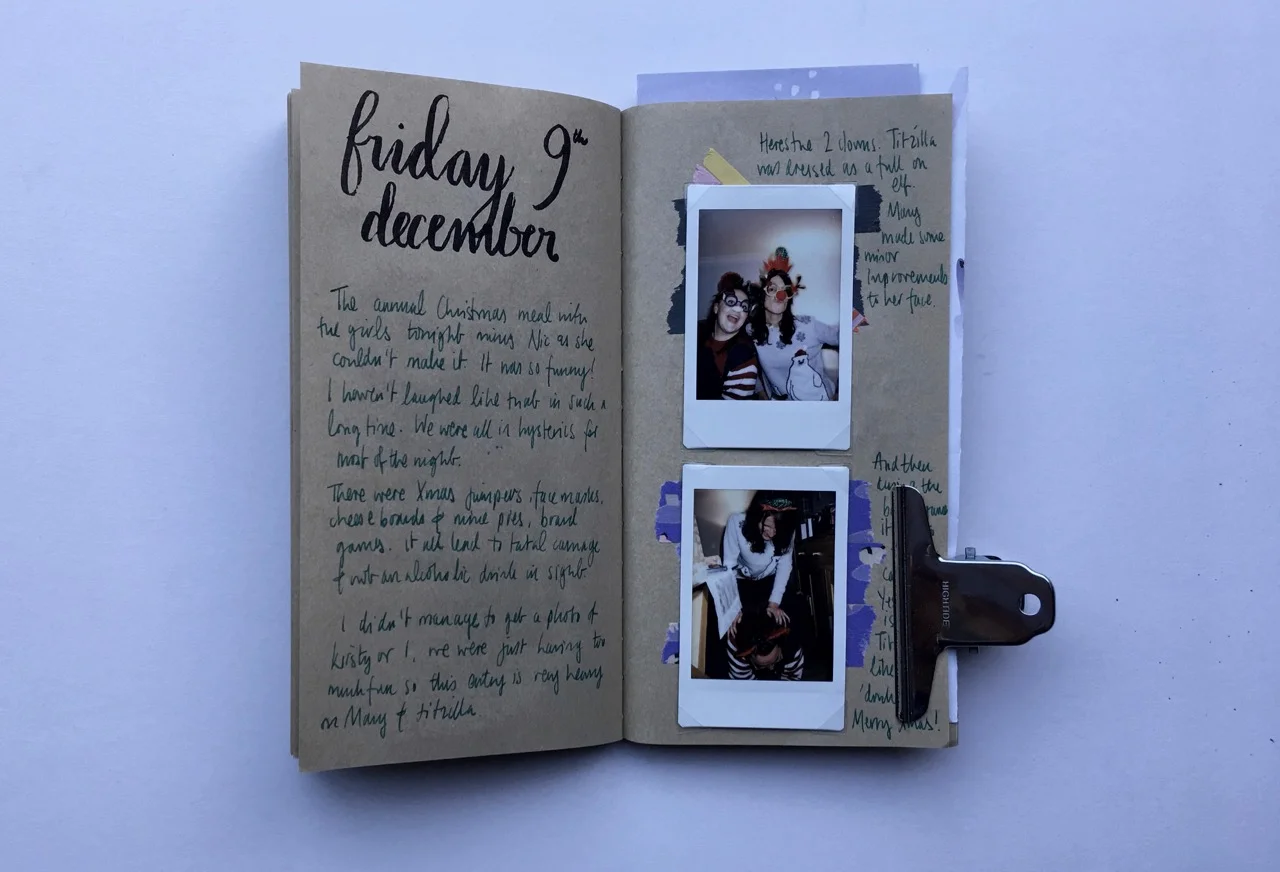 friday 9th
december
The annual Christmas meal with
the girls tonight minus Nic as she
couldn't make it. It was so funny!
I haven't laughed like that in such a
long time. We were all in hysterics for
most of the night.
There were Xmas jumpers, face masks,
cheeseboards & mince pies, board
games. it all lead to total carnage
& not an alcoholic drink in sight.
I didn't manage to get a photo of
kirsty or I, we were just having too
much fun so this entry is very heavy
on Mary & titzilla
Heres the 2 clowns. Titzilla
was dressed as a full on
elf.
Mary
made some
minor
improvements
to her face.
And then
the
it
is
Tit
like
Merry Xmas!
HIGHTIDE